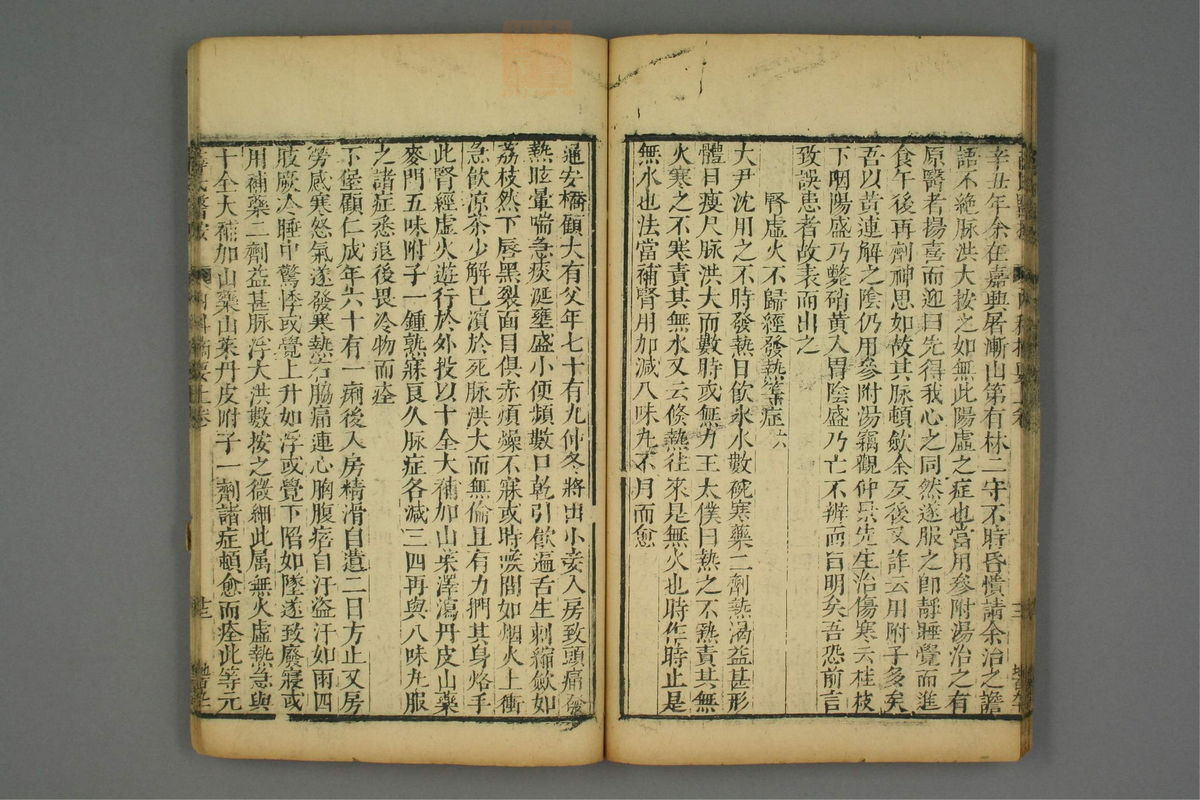 辛丑年余在嘉興屠漸山第有林二守不時昏憒請余治之譫
語不絶脉洪大按之如無此陽虛之症也當用參附湯治之有
原醫者揚喜而迎曰先得我心之同然遂服之卽靜睡覺而進
食午後再劑神思如故其脉頓歛余又後又詐云用附子多矣
吾以黃連解之陰仍用參附湯竊觀仲景先生治傷寒云桂枝
下咽陽盛乃斃硝黃入胃陰盛乃亡不辨而自明矣吾恐前言
致誤患者故表而出之
腎虛火不歸經發熱等症
大尹沈用之不時發熱日飲氷水數碗寒藥二劑熱渴益甚形
體日瘦尺脉洪大而數時或無力王太僕曰熱之不熱責其無
火寒之不寒責其無水又云倐熱往來是無火也時作時止是
無水也法當補腎用加減八味丸不月而愈
通安橋顧大有父年七十有九仲冬將出小妾入房致頭痛發
熱眩暈喘急痰涎壅盛小便頻數口乾引飲遍舌生刺縮歛如
荔枝然下唇黑裂面目俱赤煩燥不寐或時喉間如烟火上衝
急飲凉茶少解已濱於死脉洪大而無倫且有力捫其身烙手
此腎經虛火遊行於外投以十全大補加山茱澤瀉丹皮山藥
麥門五味附子一鍾熟寐良久脉症各減三四再與八味丸服
之諸症悉退後畏冷物而痊
下堡顧仁成年六十有一痢後入房精滑自遺二日方止又房
勞感寒怒氣遂發寒熱右脇痛連心胸腹痞自汗盗汗如雨四
肢厥冷睡中驚悸或覺上升如浮或覺下陷如墜遂致廢寢或
用補藥二劑益甚脉浮大洪數按之微細此属無火虛熱急與
十全大補加山藥山茱丹皮附子一劑諸症頓愈而痊此等元